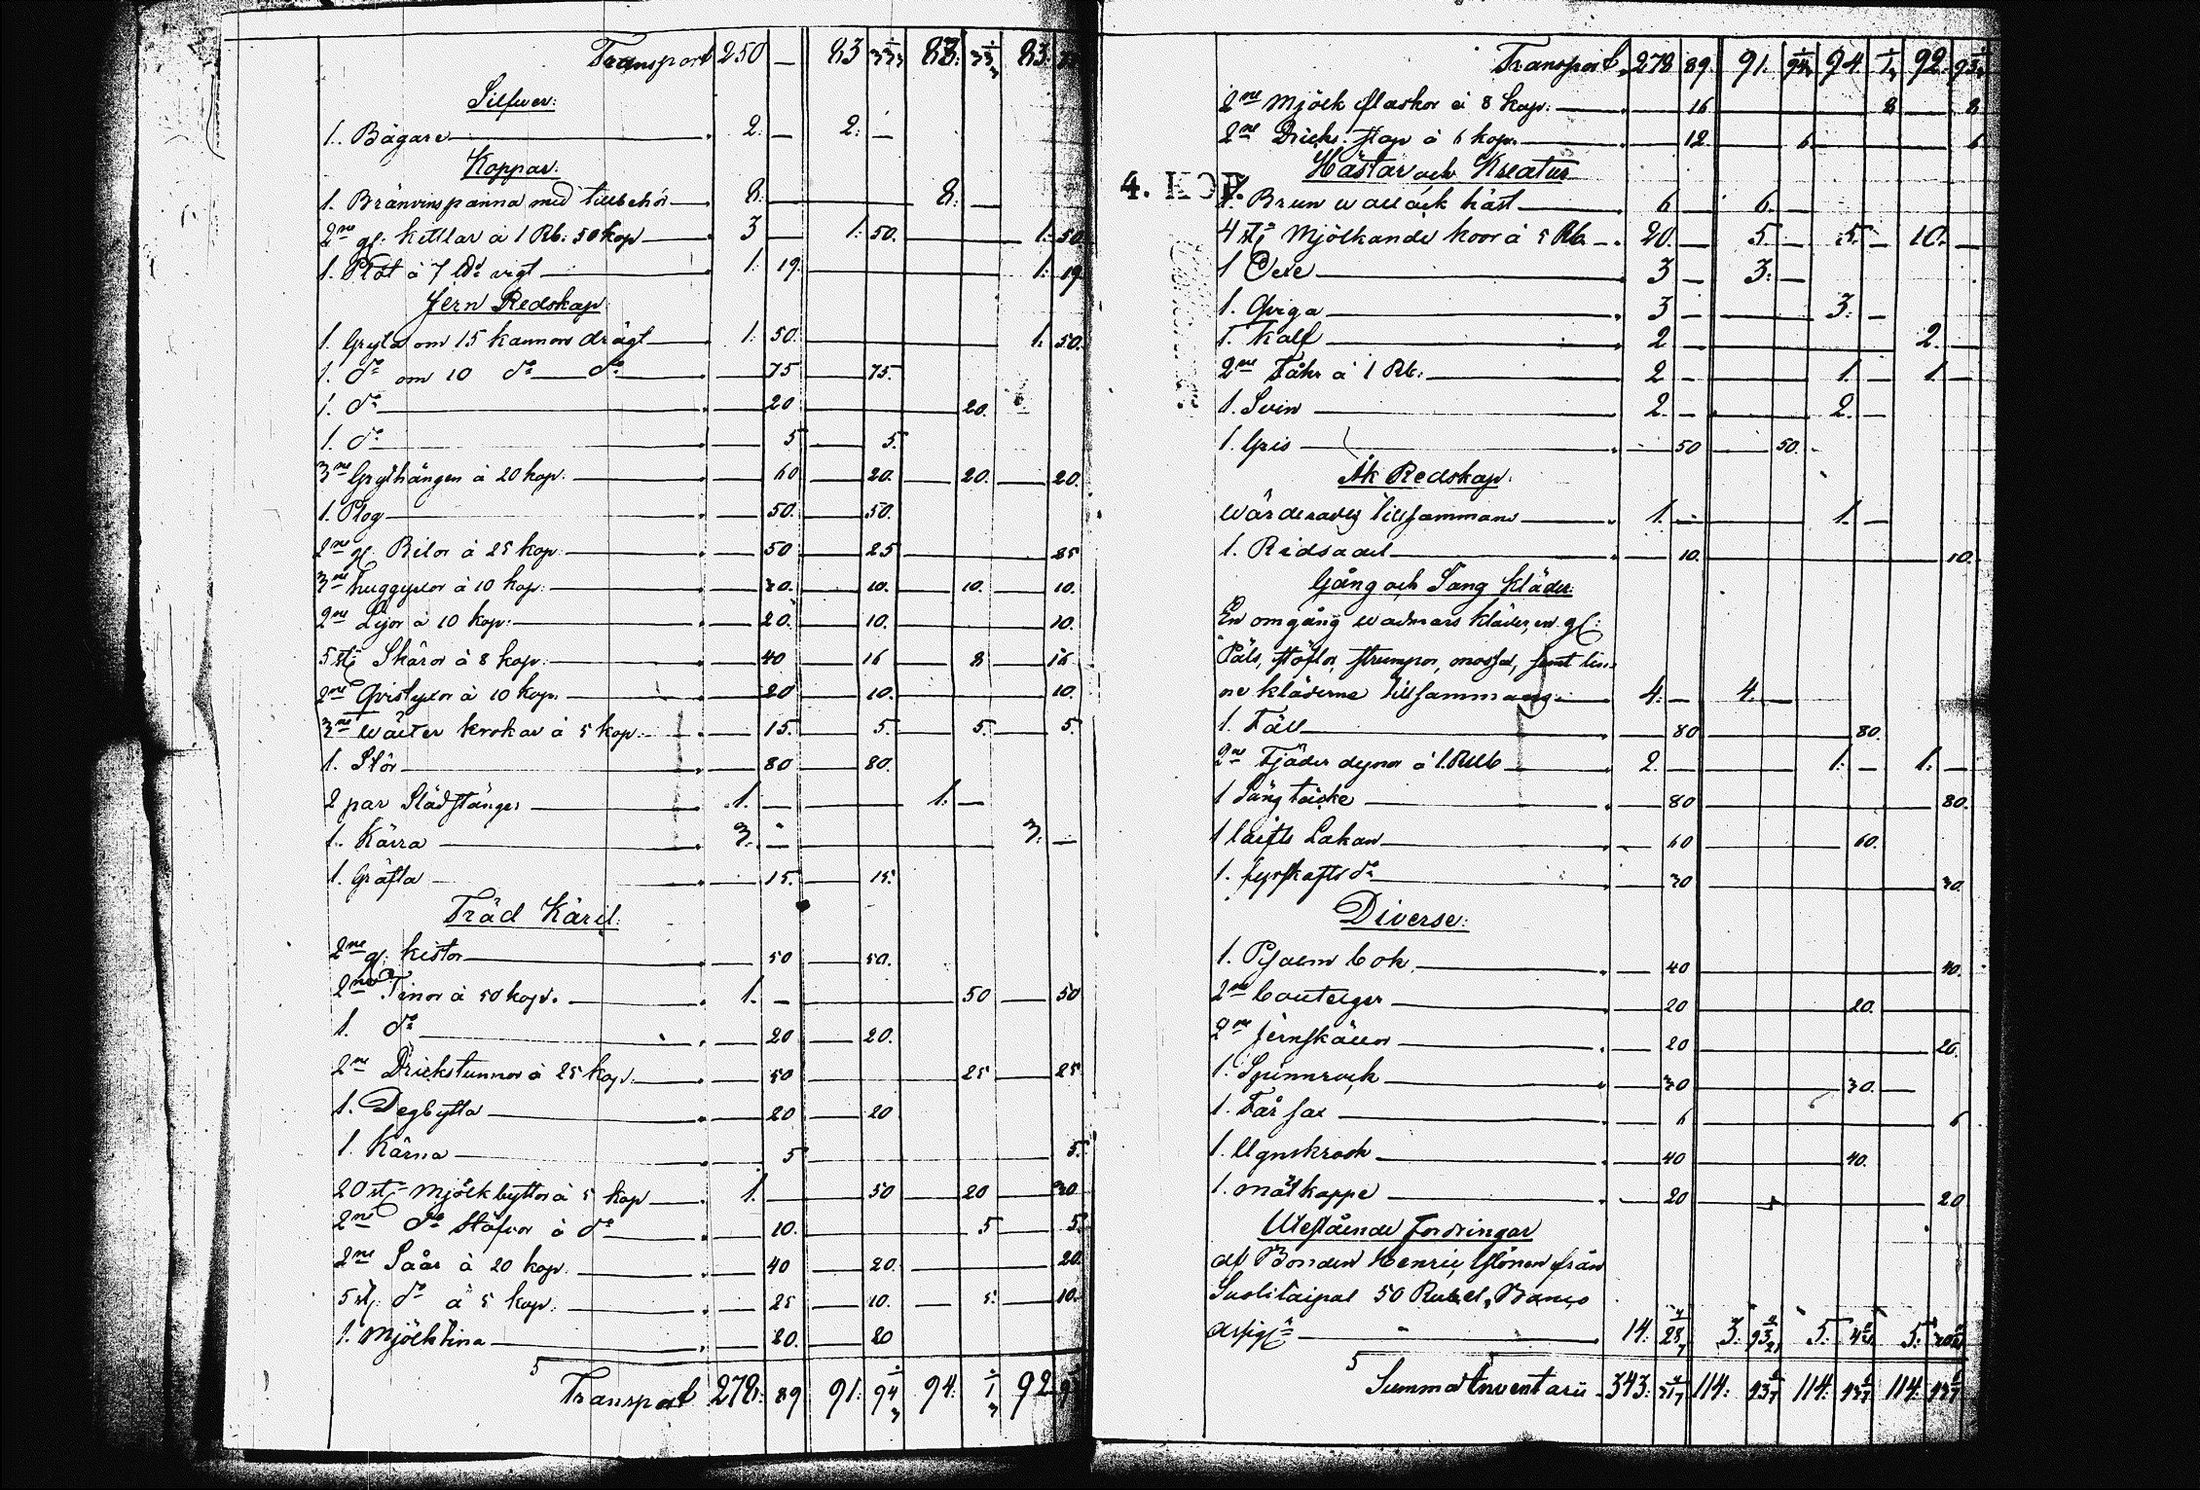 Transport 250 — 83 33 1/3 83: 33 1/3 83:
Silfwer:
1. Bägare 2. — 2. —
Koppar:
1. Bränvinspanna med tillbehör 8. — 8. —
2ne gl: kittlar à 1 Rb: 50 kop 3 — 1. 50. 1. 50
1. Plåt à 7 lb: vigt 1. 19. 1. 19
Jern Redskap
1. Gryta om 15 kannors drägt 1. 50. 1. 50.
1. do om 10 do do 75 75.
1. do 20 20.
1. do 5 5.
3ne Grythängen à 20 kop. 60 20. 20. 20.
1. Plog 50. 50.
2ne gl. Bilor à 25 kop. 50 25 25
3ne huggyxor à 10 kop: 30. 10. 10. 10.
2ne Lijor à 10 kop: 20. 10. 10.
5 st: Skäror à 8 kop. 40 16 8 16
2ne Qvistyxor à 10 kop. 20 10. 10.
3ne wälter krokar à 5 kop. 15. 5. 5. 5.
1. Slör 80 80.
2 par Slädstänger 1. — 1. —
1. Kärra 3. — 3. —
1. Gräfta 15. 15.
Träd Käril:
2ne gl. kistor 50 50.
2ne Tinor à 50 kop. 1. — 50 50
1. do 20 20.
2ne Drickstunnor à 25 kop. 50 25 25
1. Degbytta 20 20
1. Kärna 5 5.
20 st: Mjölkbyttor à 5 kop 1. 50 20 30
2ne do Stäfvor à do 10. 5 5.
2ne Saår à 20 kop. 40 20. 20.
5 st: do à 5 kop. 25 10. 5. 10.
1. Mjölktina 20. 20
Transport 278. 89 91. 94 1/3 94. 1 1/3 92
Transport 278 89. 91. 94 94 1 92.
2ne Mjölk flaskor à 8 kop: 16 8 8
2ne Dricks stop à 6 kop. 12. 6. 6
Hästar och Kreatur
4. KOP.
1. Brun wallack häst 6 — 6. —
4 st: Mjölkande koor à 5 Rb. 20. — 5. — 5. — 10. —
1 Oxe 3 — 3. —
1. Qviga 3 — 3. —
1. Kalf 2 — 2. —
2ne Fåhr à 1 Rb: 2 — 1. — 1. —
1. Svin 2. — 2. —
1. Gris 50 50.
Åk Redskap.
wärderades tillsammans 1. — 1. —
1. Ridsadel 10. 10.
Gång och Säng Kläder:
En omgång wadmars kläder, en gl:
Päls, stöflor, strumpor, mössa, samt lin-
ne kläderne tillsammans 4. — 4. —
1. Fäll 80 80.
2ne Fjäder dynor à 1. Rub 2. — 1. — 1. —
1 Säng täcke 80 80.
1 lärfts Lakan 60 60.
1. fyrskafts do 30 30.
Diverse:
1. Psalm bok 40 40.
2ne bouteiger 20 20.
2ne Jernskållor 20 20.
1. Spinnrock 30 30.
1. Får sax 6 6
1. Ugnskrook 40 40.
1. mått kappe 20 20
Utestående Fordringar
af Bonden Henric Ilönen från
Suolitaipal 50 Rubel, Banco
assign 14. 28 4/7 3. 5. 5.
Summa Inventarii 343. 114. 114. 114.